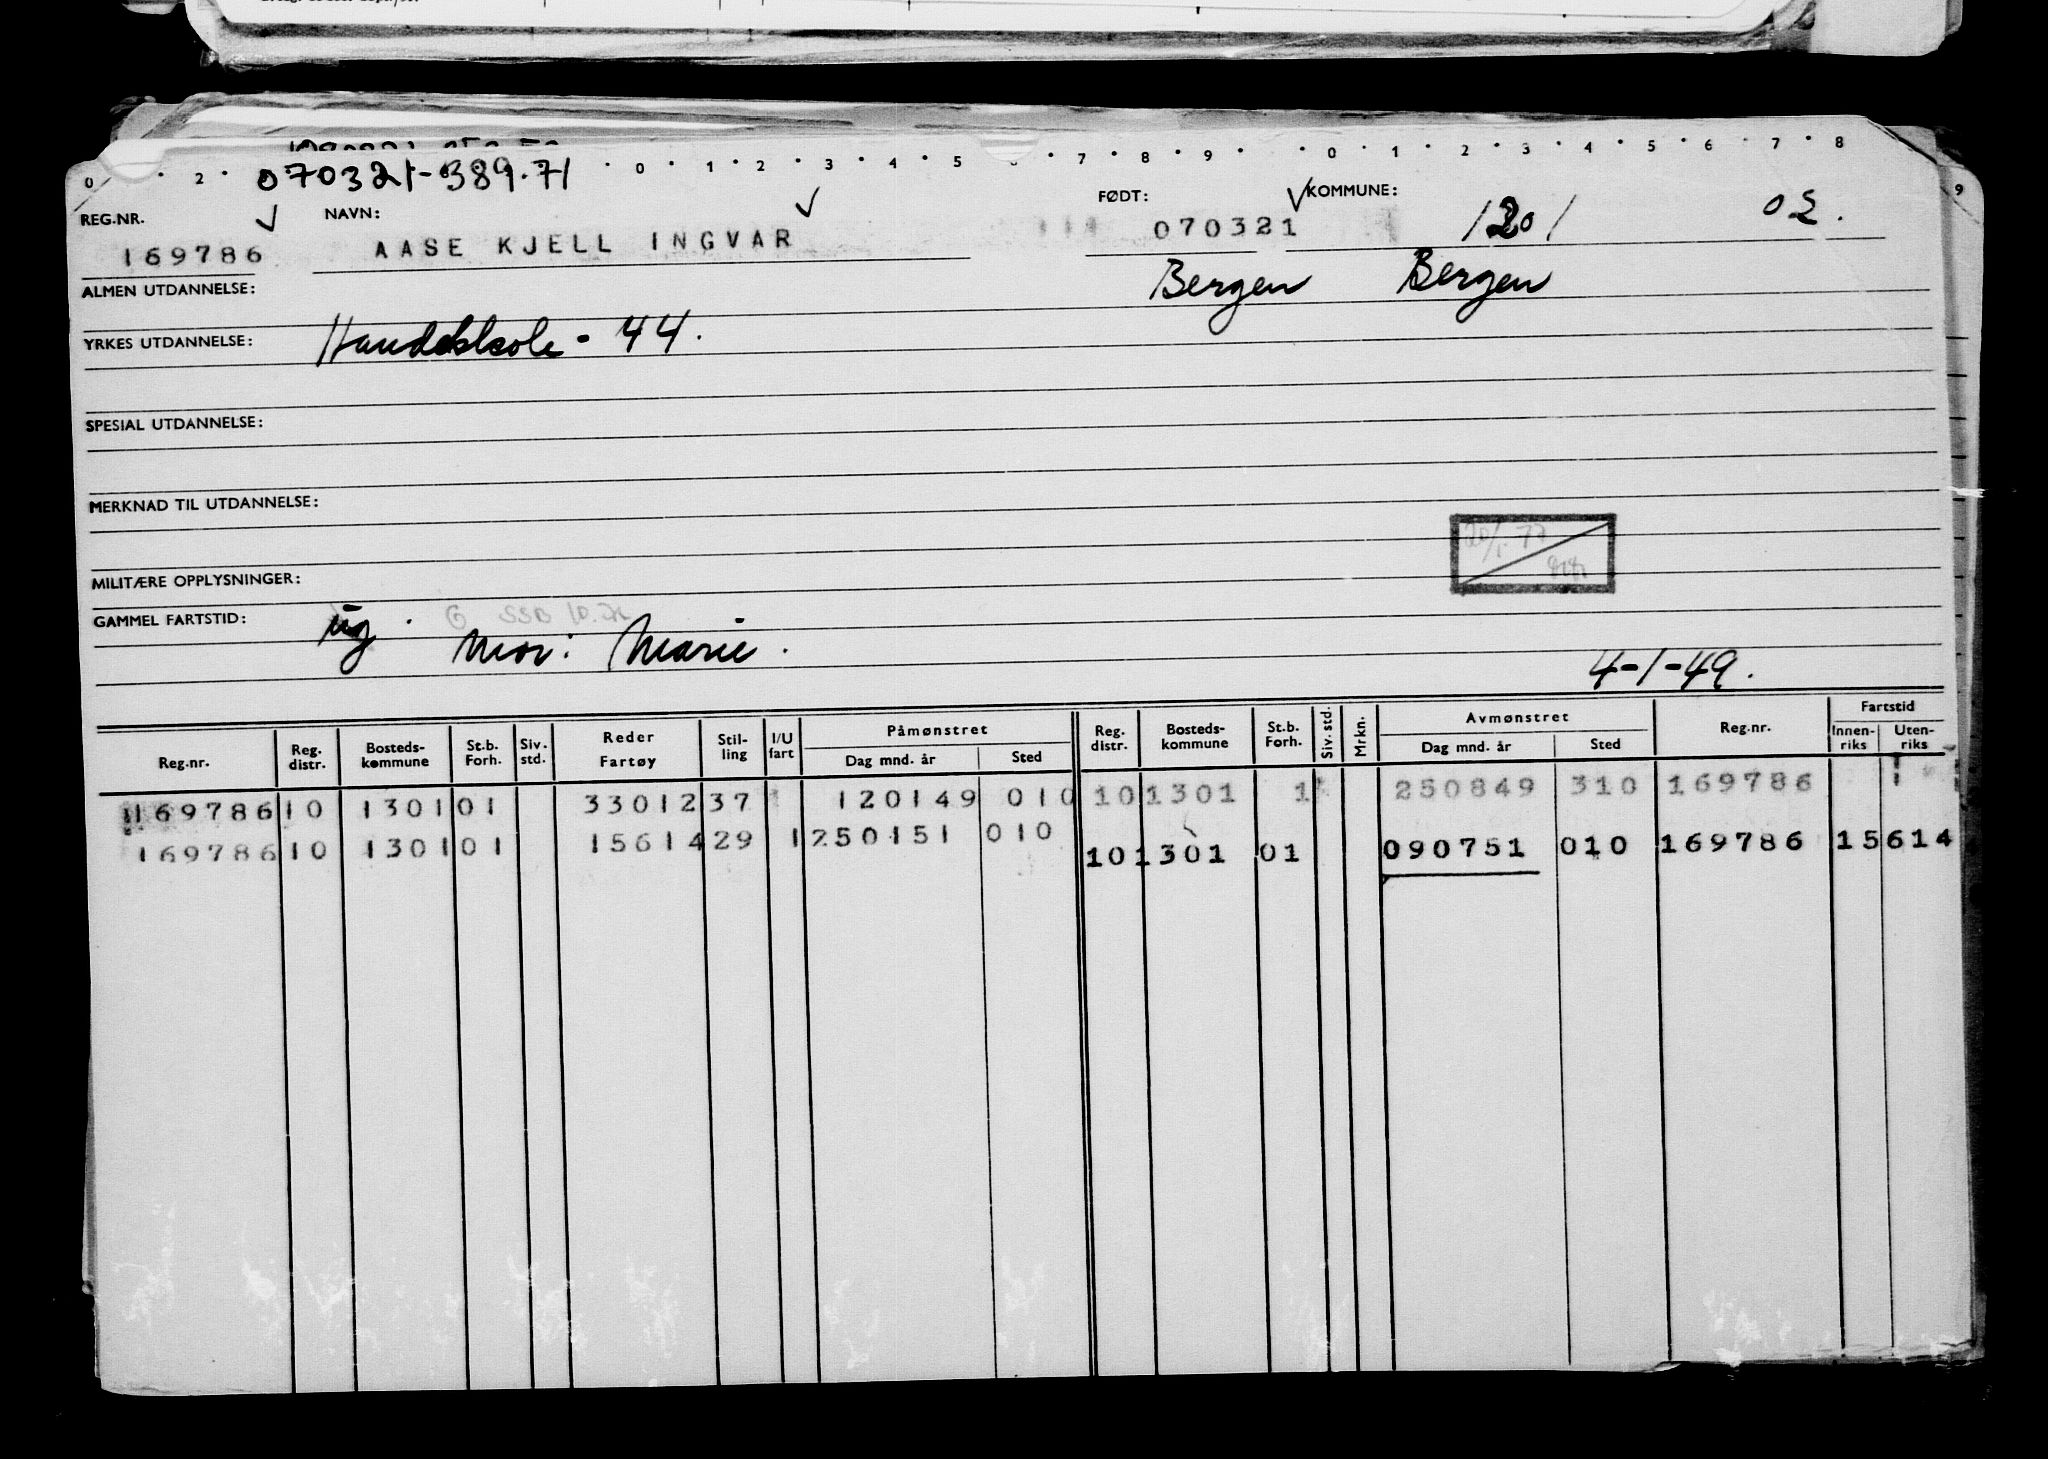 0 2 0 1 2 3 4 5 7 8 9 0 1 2 3 4 5 6 7 8
070321-389.71
9
REG.NR. NAVN: FØDT: KOMMUNE:
169786 AASE KJELL INGVAR 070321 1301 02.
ALMEN UTDANNELSE: Bergen Bergen
YRKES UTDANNELSE: Handelskole - 44.
SPESIAL UTDANNELSE:
MERKNAD TIL UTDANNELSE:
20/1-77
MILITÆRE OPPLYSNINGER:
GAMMEL FARTSTID: ug. SSB
Mor: Marie.
4-1-49.
Reg.nr. Reg. distr. Bosteds-kommune St.b. Forh. Siv. std. Reder Fartøy Stil-ling I/U fart Påmønstret Dag mnd. år Sted Reg. distr. Bosteds-kommune St.b. Forh. Siv. std. Mrkn. Avmønstret Dag mnd. år Sted Reg.nr. Fartstid Innen-riks Uten-riks
169786 10 1301 01 33012 37 120149 010 10 1301 1 250849 310 169786
169786 10 1301 01 15614 29 1 250151 010 10 1301 01 090751 010 169786 15614